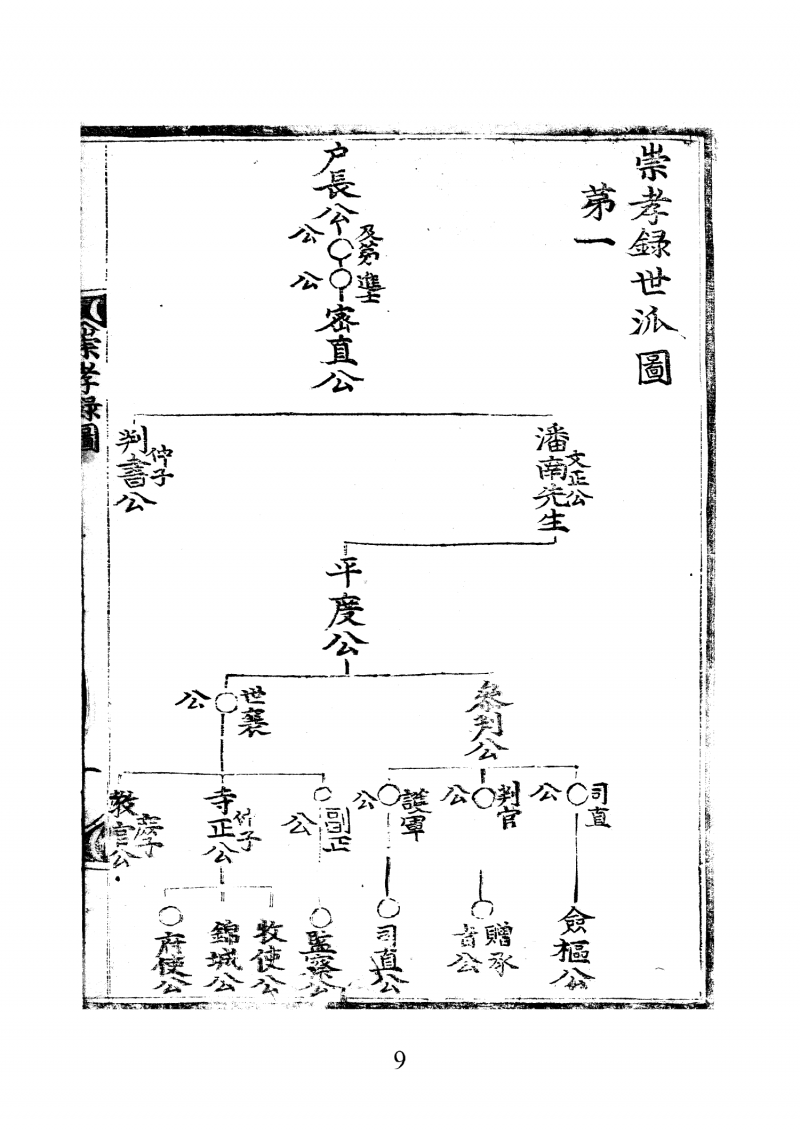 崇孝録世派圖
第一
户長公
及第公
進士公
密直公
文正公
潘南先生
仲子
判書公
平度公
叅判公
世襄公
司直公
判官公
護軍公
副正公
仲子
寺正公
季子
教官公
僉樞公
贈承旨公
司直公
監察公
牧使公
錦城公
府使公
崇孝録圖
一
9